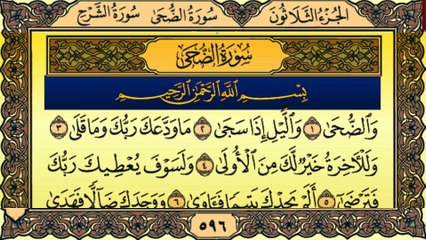 الجُزْءُ الثَّلَاثُونَ سُورَةُ الضُّحَى سُورَةُ الشَّرْحِ
سُورَةُ الضُّحَى
بِسْمِ اللَّهِ الرَّحْمَٰنِ الرَّحِيمِ
وَالضُّحَىٰ ١ وَاللَّيْلِ إِذَا سَجَىٰ ٢ مَا وَدَّعَكَ رَبُّكَ وَمَا قَلَىٰ ٣
وَلَلْآخِرَةُ خَيْرٌ لَّكَ مِنَ الْأُولَىٰ ٤ وَلَسَوْفَ يُعْطِيكَ رَبُّكَ
فَتَرْضَىٰ ٥ أَلَمْ يَجِدْكَ يَتِيمًا فَآوَىٰ ٦ وَوَجَدَكَ ضَالًّا فَهَدَىٰ
٥٩٦